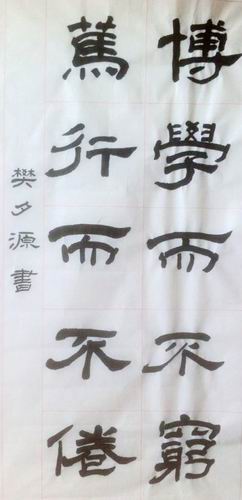 博學而不窮
篤行而不倦
樊夕源書